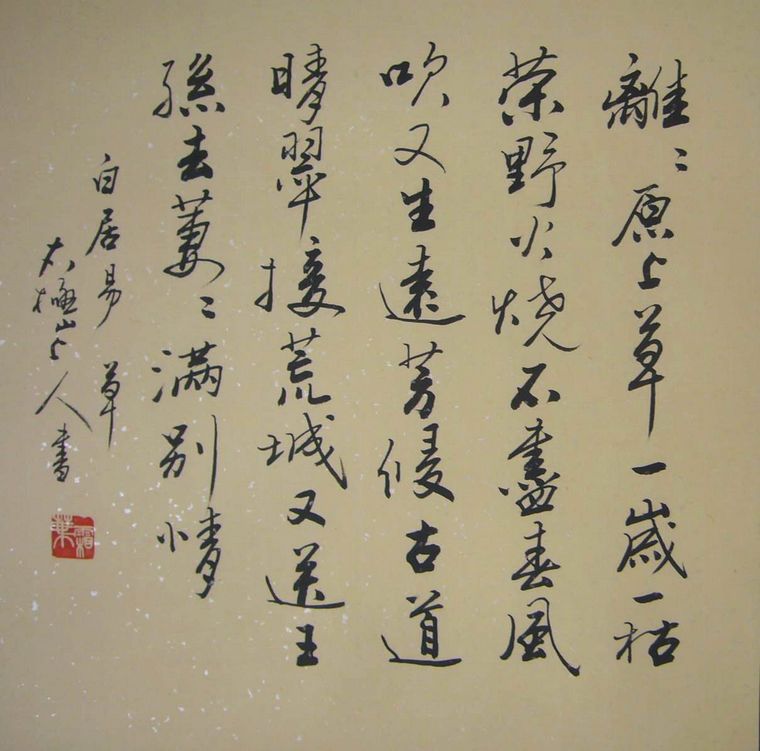 離〻原上草一歲一枯
榮野火燒不盡春風
吹又生遠芳侵古道
晴翠接荒城又送王
孫去萋〻滿別情
白居易 草
太極山上人書
霜葉